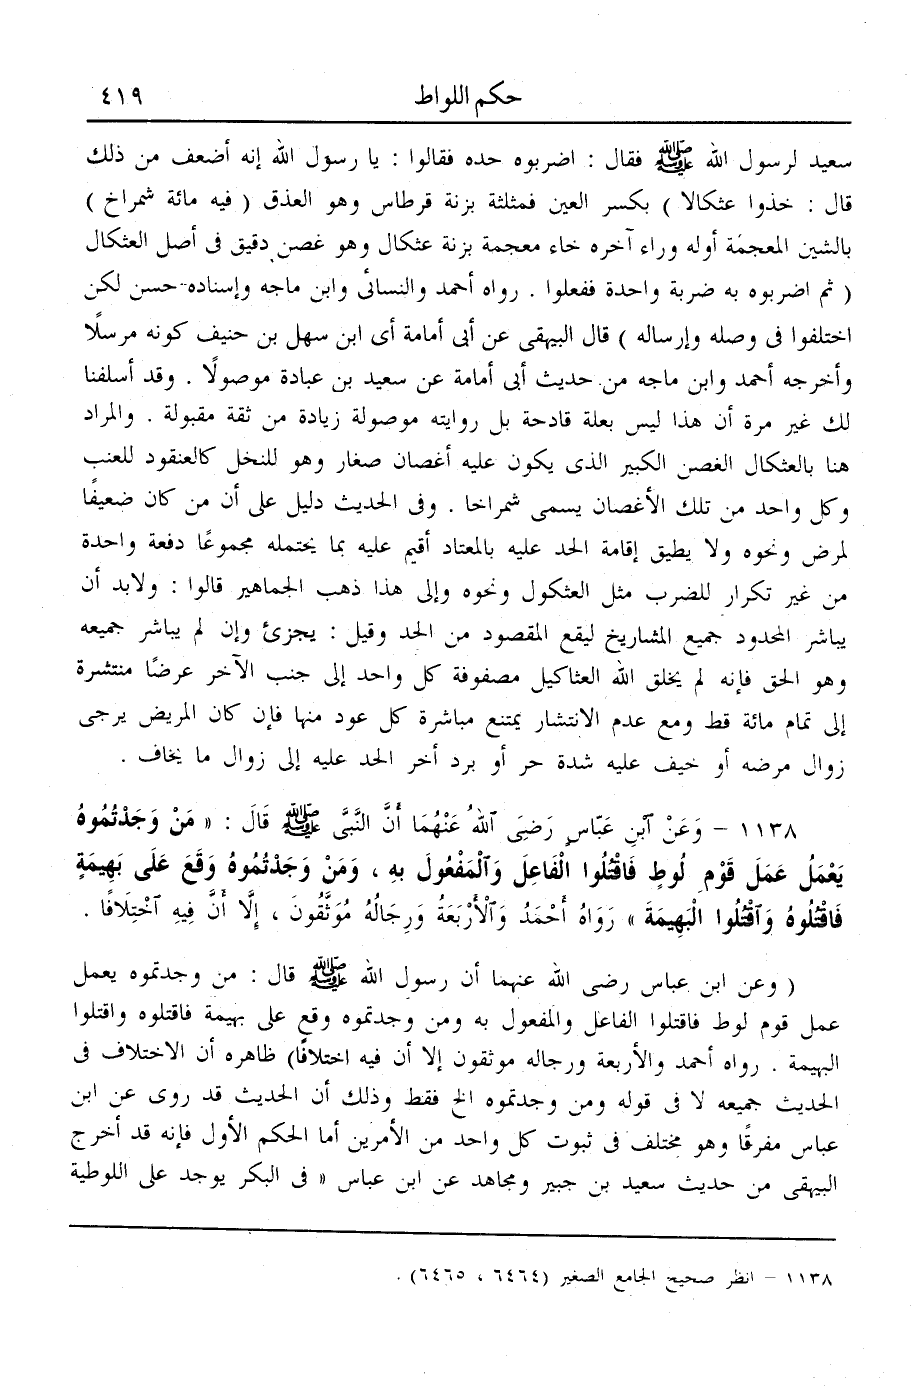 حكم اللواط ٤١٩
سعيد لرسول الله ﷺ فقال : اضربوه حده فقالوا : يا رسول الله إنه أضعف من ذلك
قال : خذوا عثكالا ) بكسر العين فمثلثة بزنة قرطاس وهو العذق ( فيه مائة شمراخ )
بالشين المعجمة أوله وراء آخره خاء معجمة بزنة عثكال وهو غصن دقيق فى أصل العثكال
( ثم اضربوه به ضربة واحدة ففعلوا . رواه أحمد والنسائى وابن ماجه وإسناده حسن لكن
اختلفوا فى وصله وإرساله ) قال البيهقى عن أبى أمامة أى ابن سهل بن حنيف كونه مرسلًا
وأخرجه أحمد وابن ماجه من حديث أبى أمامة عن سعيد بن عبادة موصولًا . وقد أسلفنا
لك غير مرة أن هذا ليس بعلة قادحة بل روايته موصولة زيادة من ثقة مقبولة . والمراد
هنا بالعثكال الغصن الكبير الذى يكون عليه أغصان صغار وهو للنخل كالعنقود للعنب
وكل واحد من تلك الأغصان يسمى شمراخا . وفى الحديث دليل على أن من كان ضعيفًا
لمرض ونحوه ولا يطيق إقامة الحد عليه بالمعتاد أقيم عليه بما يحتمله مجموعًا دفعة واحدة
من غير تكرار للضرب مثل العثكول ونحوه وإلى هذا ذهب الجماهير قالوا : ولابد أن
يباشر المحدود جميع المشاريخ ليقع المقصود من الحد وقيل : يجزئ وإن لم يباشر جميعه
وهو الحق فإنه لم يخلق الله العثاكيل مصفوفة كل واحد إلى جنب الآخر عرضًا منتشرة
إلى تمام مائة قط ومع عدم الانتشار يمتنع مباشرة كل عود منها فإن كان المريض يرجى
زوال مرضه أو خيف عليه شدة حر أو برد أخر الحد عليه إلى زوال ما يخاف .
١١٣٨ – وَعَنْ ٱبْنِ عَبَّاسٍ رَضِىَ ٱللهُ عَنْهُمَا أَنَّ النَّبِّى ﷺ قَالَ : « مَنْ وَجَدْتُمُوهُ
يَعْمَلُ عَمَلَ قَوْمِ لُوطٍ فَاقْتُلُوا الْفَاعِلَ وَٱلْمَفْعُولَ بِهِ ، وَمَنْ وَجَدْتُمُوهُ وَقَعَ عَلَى بَهِيمَةٍ
فَاقْتُلُوهُ وَٱقْتُلُوا الْبَهِيمَةَ » رَوَاهُ أَحْمَدُ وَٱلْأَرْبَعَةُ وَرِجَالُهُ مُوَثَّقُونَ ، إِلَّا أَنَّ فِيهِ ٱخْتِلَافًا .
( وعن ابن عباس رضى الله عنهما أن رسول الله ﷺ قال : من وجدتموه يعمل
عمل قوم لوط فاقتلوا الفاعل والمفعول به ومن وجدتموه وقع على بهيمة فاقتلوه واقتلوا
البهيمة . رواه أحمد والأربعة ورجاله موثقون إلا أن فيه اختلافًا) ظاهره أن الاختلاف فى
الحديث جميعه لا فى قوله ومن وجدتموه الخ فقط وذلك أن الحديث قد روى عن ابن
عباس مفرقًا وهو مختلف فى ثبوت كل واحد من الأمرين أما الحكم الأول فإنه قد أخرج
البيهقى من حديث سعيد بن جبير ومجاهد عن ابن عباس « فى البكر يوجد على اللوطية
١١٣٨ – انظر صحيح الجامع الصغير (٦٤٦٤ ، ٦٤٦٥) .